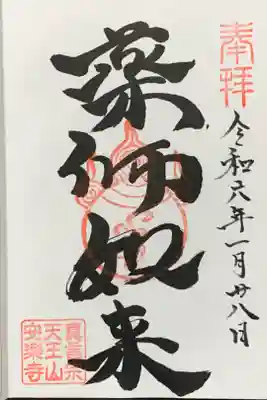 奉拝
令和六年一月廿八日
薬師如来
真言宗
天王山
安楽寺